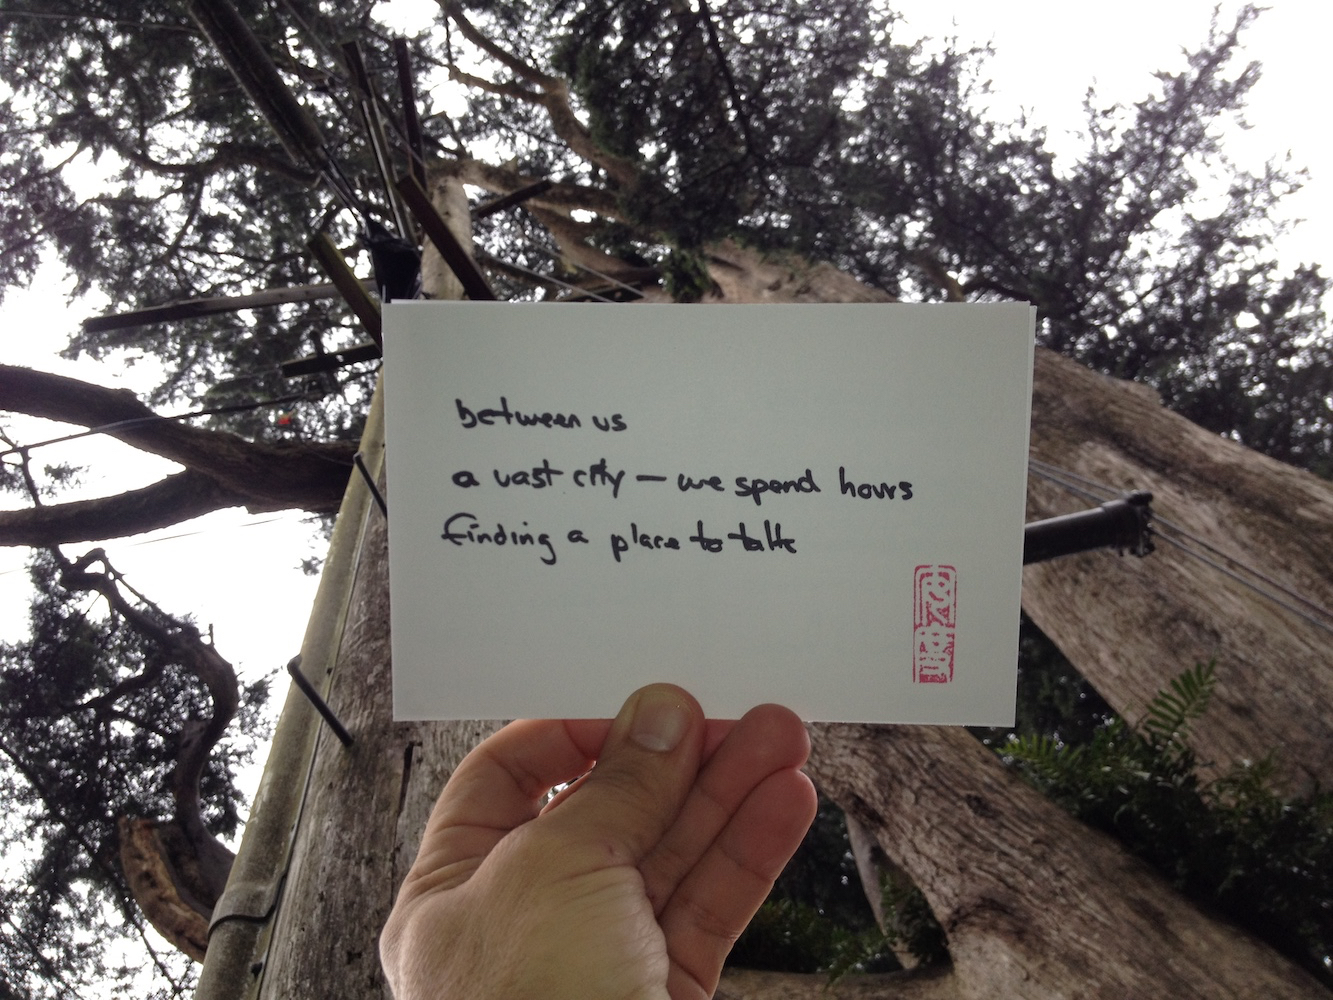 between us
a vast city — we spend hours
finding a place to talk